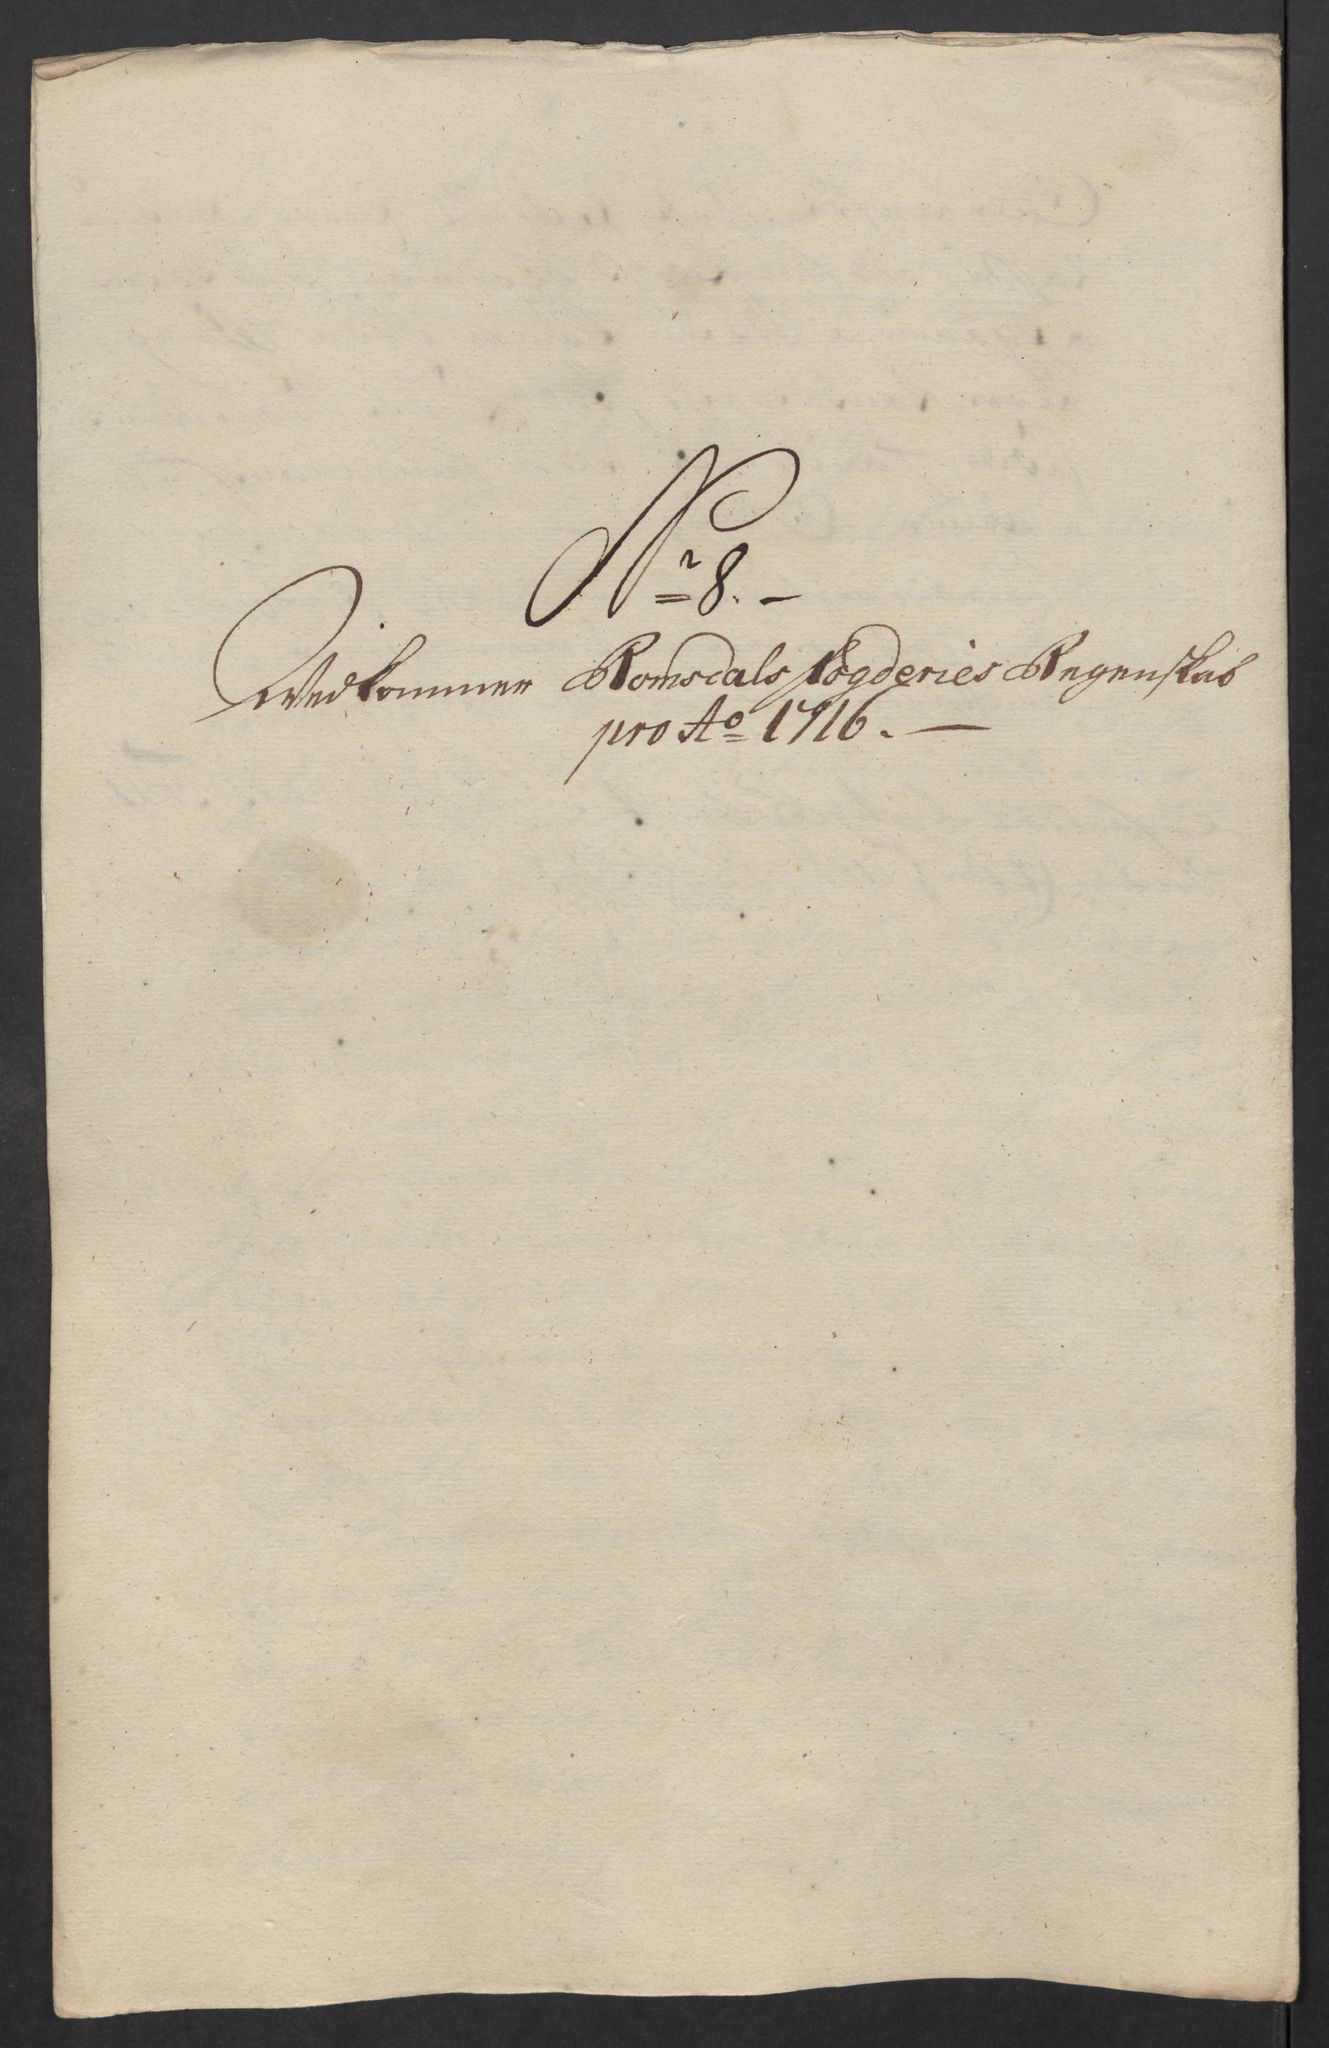 Nr 8. –
Wedkommer Romsdals fogderies Regenskab
pro Ao 1716. –